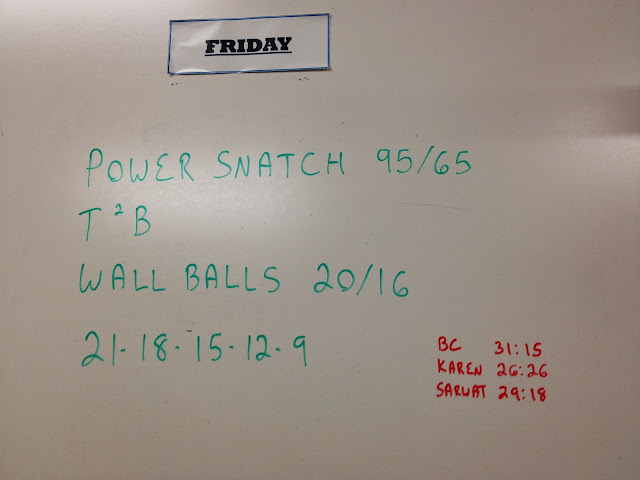 FRIDAY
POWER SNATCH 95/65
T²B
WALL BALLS 20/16
21-18-15-12-9
BC 31:15
KAREN 26:26
SARWAT 29:18